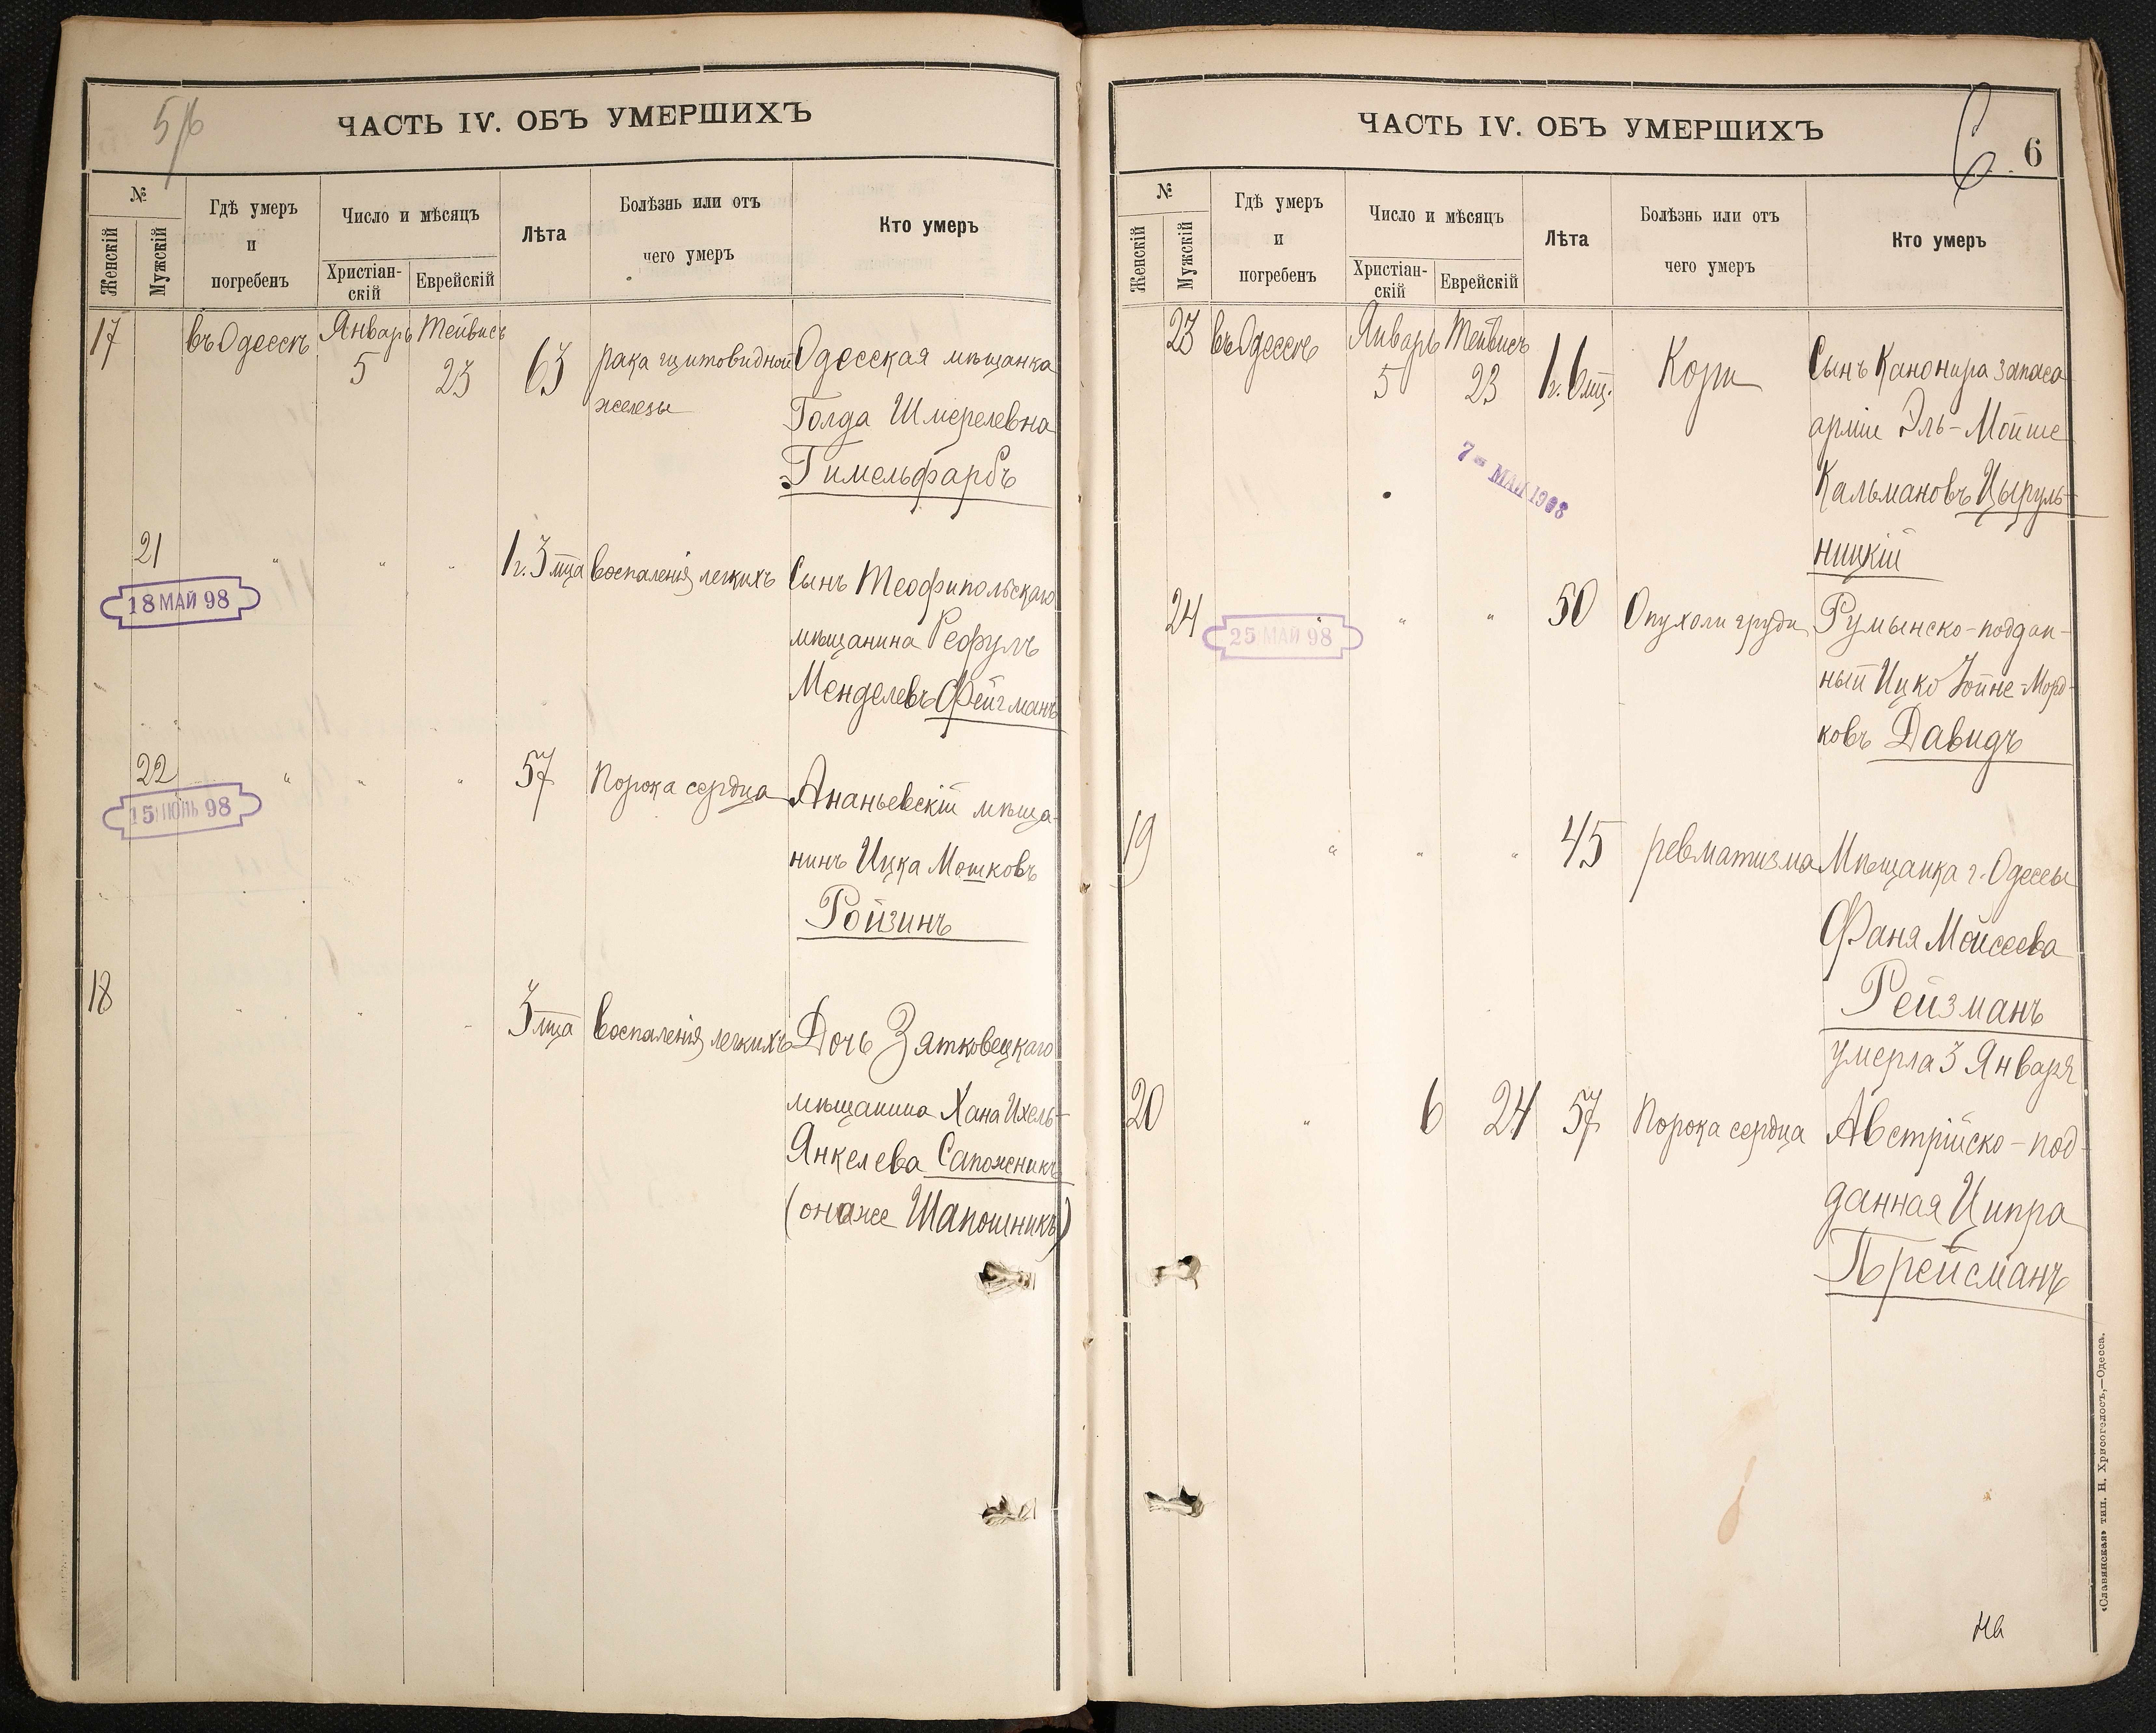 5/6
ЧАСТЬ IV. ОБЪ УМЕРШИХЪ
№
Женскій
Мужскій
Гдѣ умеръ
и
погребенъ
Число и мѣсяцъ
Христіан-
скій
Еврейскій
Лѣта
Болѣзнь или отъ
чего умеръ
Кто умеръ
17 въ Одессѣ Январь 5 Тейвисъ 23 63 рака щитовидной
железы
Одесская мѣщанка
Голда Шмерелевна
Гимельфарбъ
21 " " " 1 г. 3 мца воспаленія легкихъ Сынъ Теофипольскаго
18 МАЙ 98
мѣщанина Рефулъ
Менделевъ Фейгманъ
22 " " " 57 Порока сердца Ананьевскій мѣща-
15 ІЮНЬ 98
нинъ Ицка Мошковъ
Ройзинъ
18 " " " 3 мца воспаленія легкихъ Дочь Зятковецкаго
мѣщанина Хана Ихель-
Янкелева Сапожникъ
(она же Шапошникъ)
6
ЧАСТЬ IV. ОБЪ УМЕРШИХЪ
6
№
Женскій
Мужскій
Гдѣ умеръ
и
погребенъ
Число и мѣсяцъ
Христіан-
скій
Еврейскій
Лѣта
Болѣзнь или отъ
чего умеръ
Кто умеръ
23 въ Одессѣ Январь 5 Тейвисъ 23 1 г. 6 мц. Кори Сынъ Канонира запаса
арміи Эль-Мойше
7 - МАЙ 1908
Кальмановъ Цыруль-
ницкій
24 " " " 50 Опухоли груди Румынско-поддан-
25 МАЙ 98
ный Ицко Іойне-Морд-
ковъ Давидъ
19 " " " 45 ревматизма Мѣщанка г. Одессы
Фаня Мойсеева
Рейзманъ
умерла 3 Января
20 " 6 24 57 Порока сердца Австрійско-под-
данная Ципра
Брейсманъ
«Славянская» тип. Н. Хрисогелосъ,—Одесса.